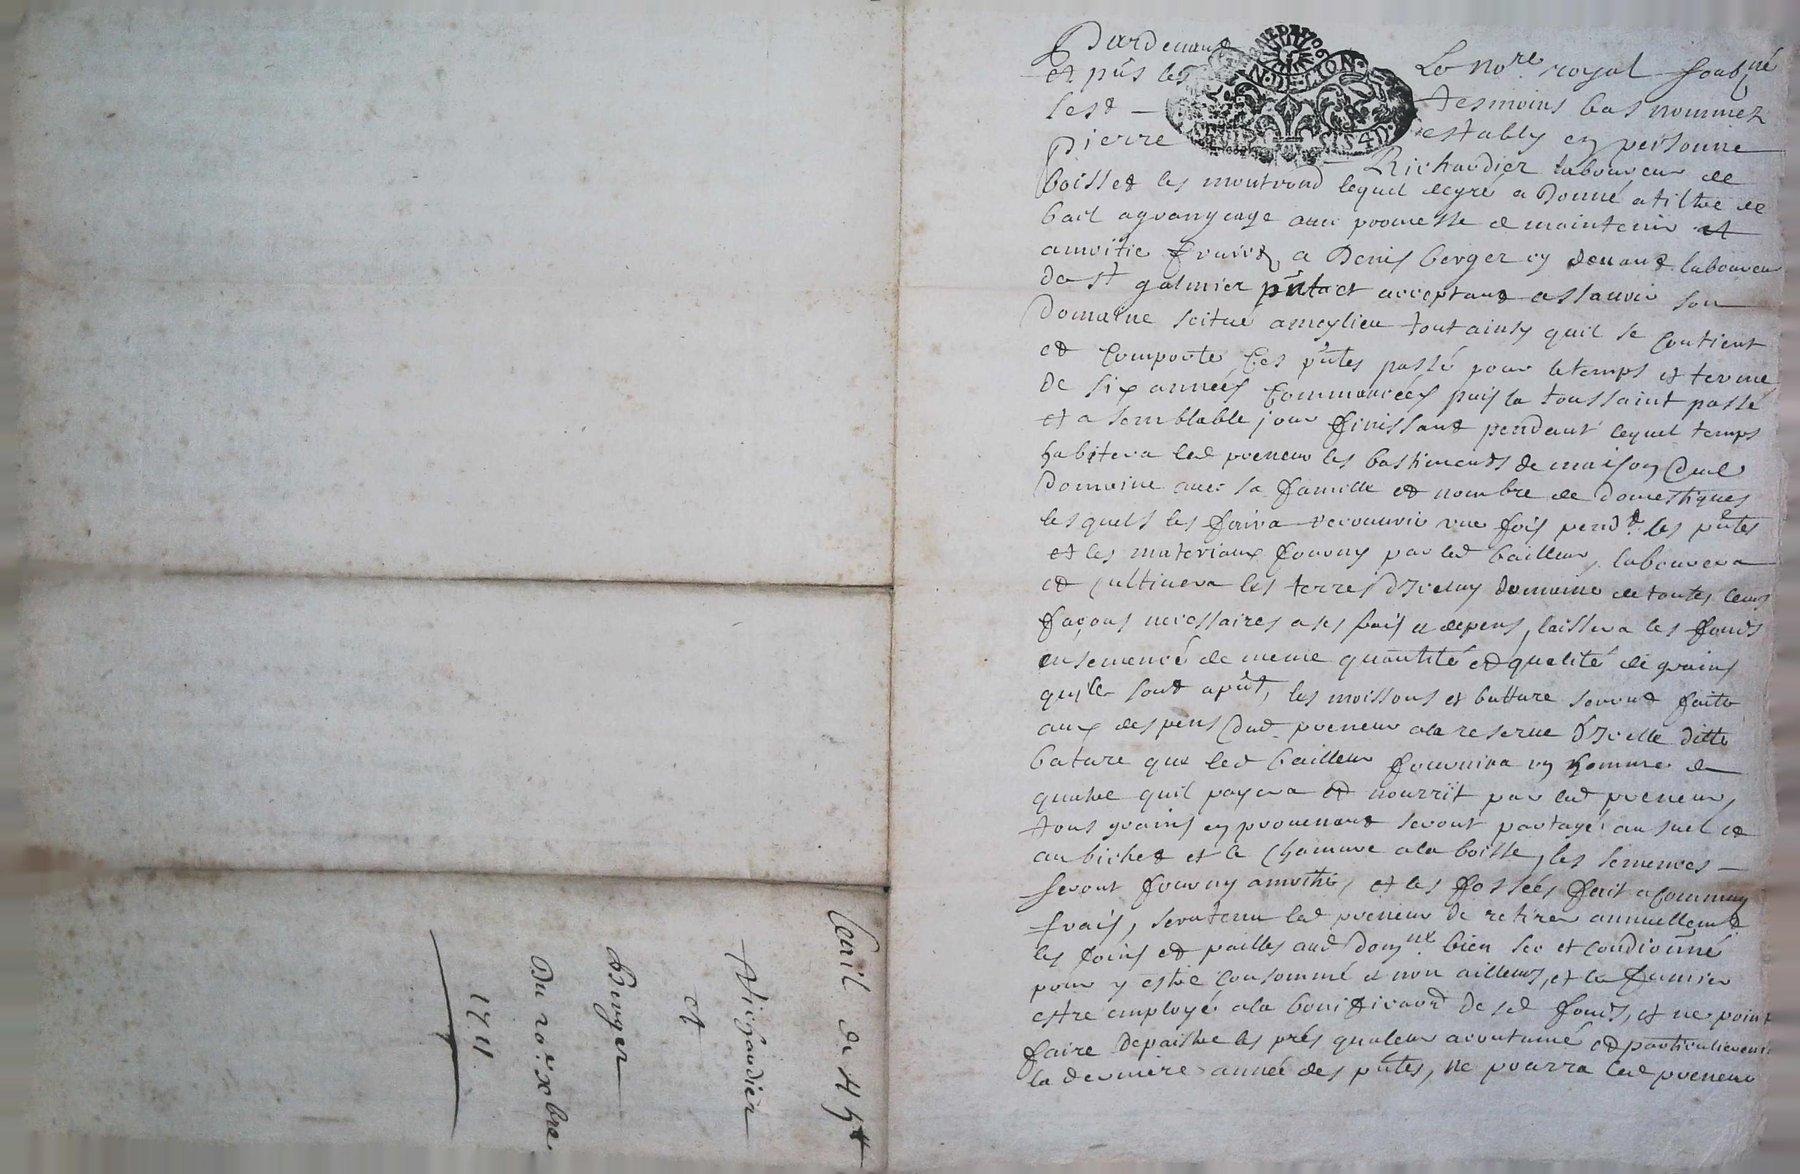 Pardevant Le no.re royal soub.né
et pn̄s les tesmoins bas nommez
sest — estably en personne
Pierre Richaudier laboureur de
boisset les montrond lequel degré a donné a tiltre de
bail a grangeage avec promesse de maintenir et
a moitie fruict a Denis berger cy devant laboureur
de st galmier pn̄t et acceptant assavoir son
Domaine scitué a meylieu tout ainsy quil se contient
et comporte Ces pn̄tes passé pour le temps et terme
de six années Commancées puis la toussaint passé
et a semblable jour finissant pendant lequel temps
habitera led preneur les bastiments de maison dud
Domaine avec sa famille et nombre de domestiques
lesquels les faira recouvrir une fois pend.t les pn̄tes
et les materiaux fourny par led bailleur, labourera
et cultivera les terres d'Iceluy domaine de toutes leurs
façons necessaires a ses frais et depens, laissera les fonds
ensemencé de meme quantité et qualité de grains
quils sont apn̄t, les moissons et batture seront faite
aux despens dud preneur a la reserve d'Icelle ditte
bature que led bailleur fournira un homme de
quatre quil payera et nourrit par led preneur,
tous grains en provenant seront partagé au suel et
au bichet et le chanvre a la boisse, les semences —
seront fourny a moitié, et les fossées fait a commun
frais, sera tenu led preneur de retirer annuellement
les foins et pailles aud dom.ne bien sec et condionné
pour y estre consommé et non ailleurs, et le fumier
estre employé a la bonificaon de sd fonds, et ne point
faire depaistre les prés qualeur acoutumé et particulierem.t
la derniere année des pn̄tes, ne pourra led preneur
bail de 45 tt
Richaudier
et
Berger
Du 10.e xbre
1741